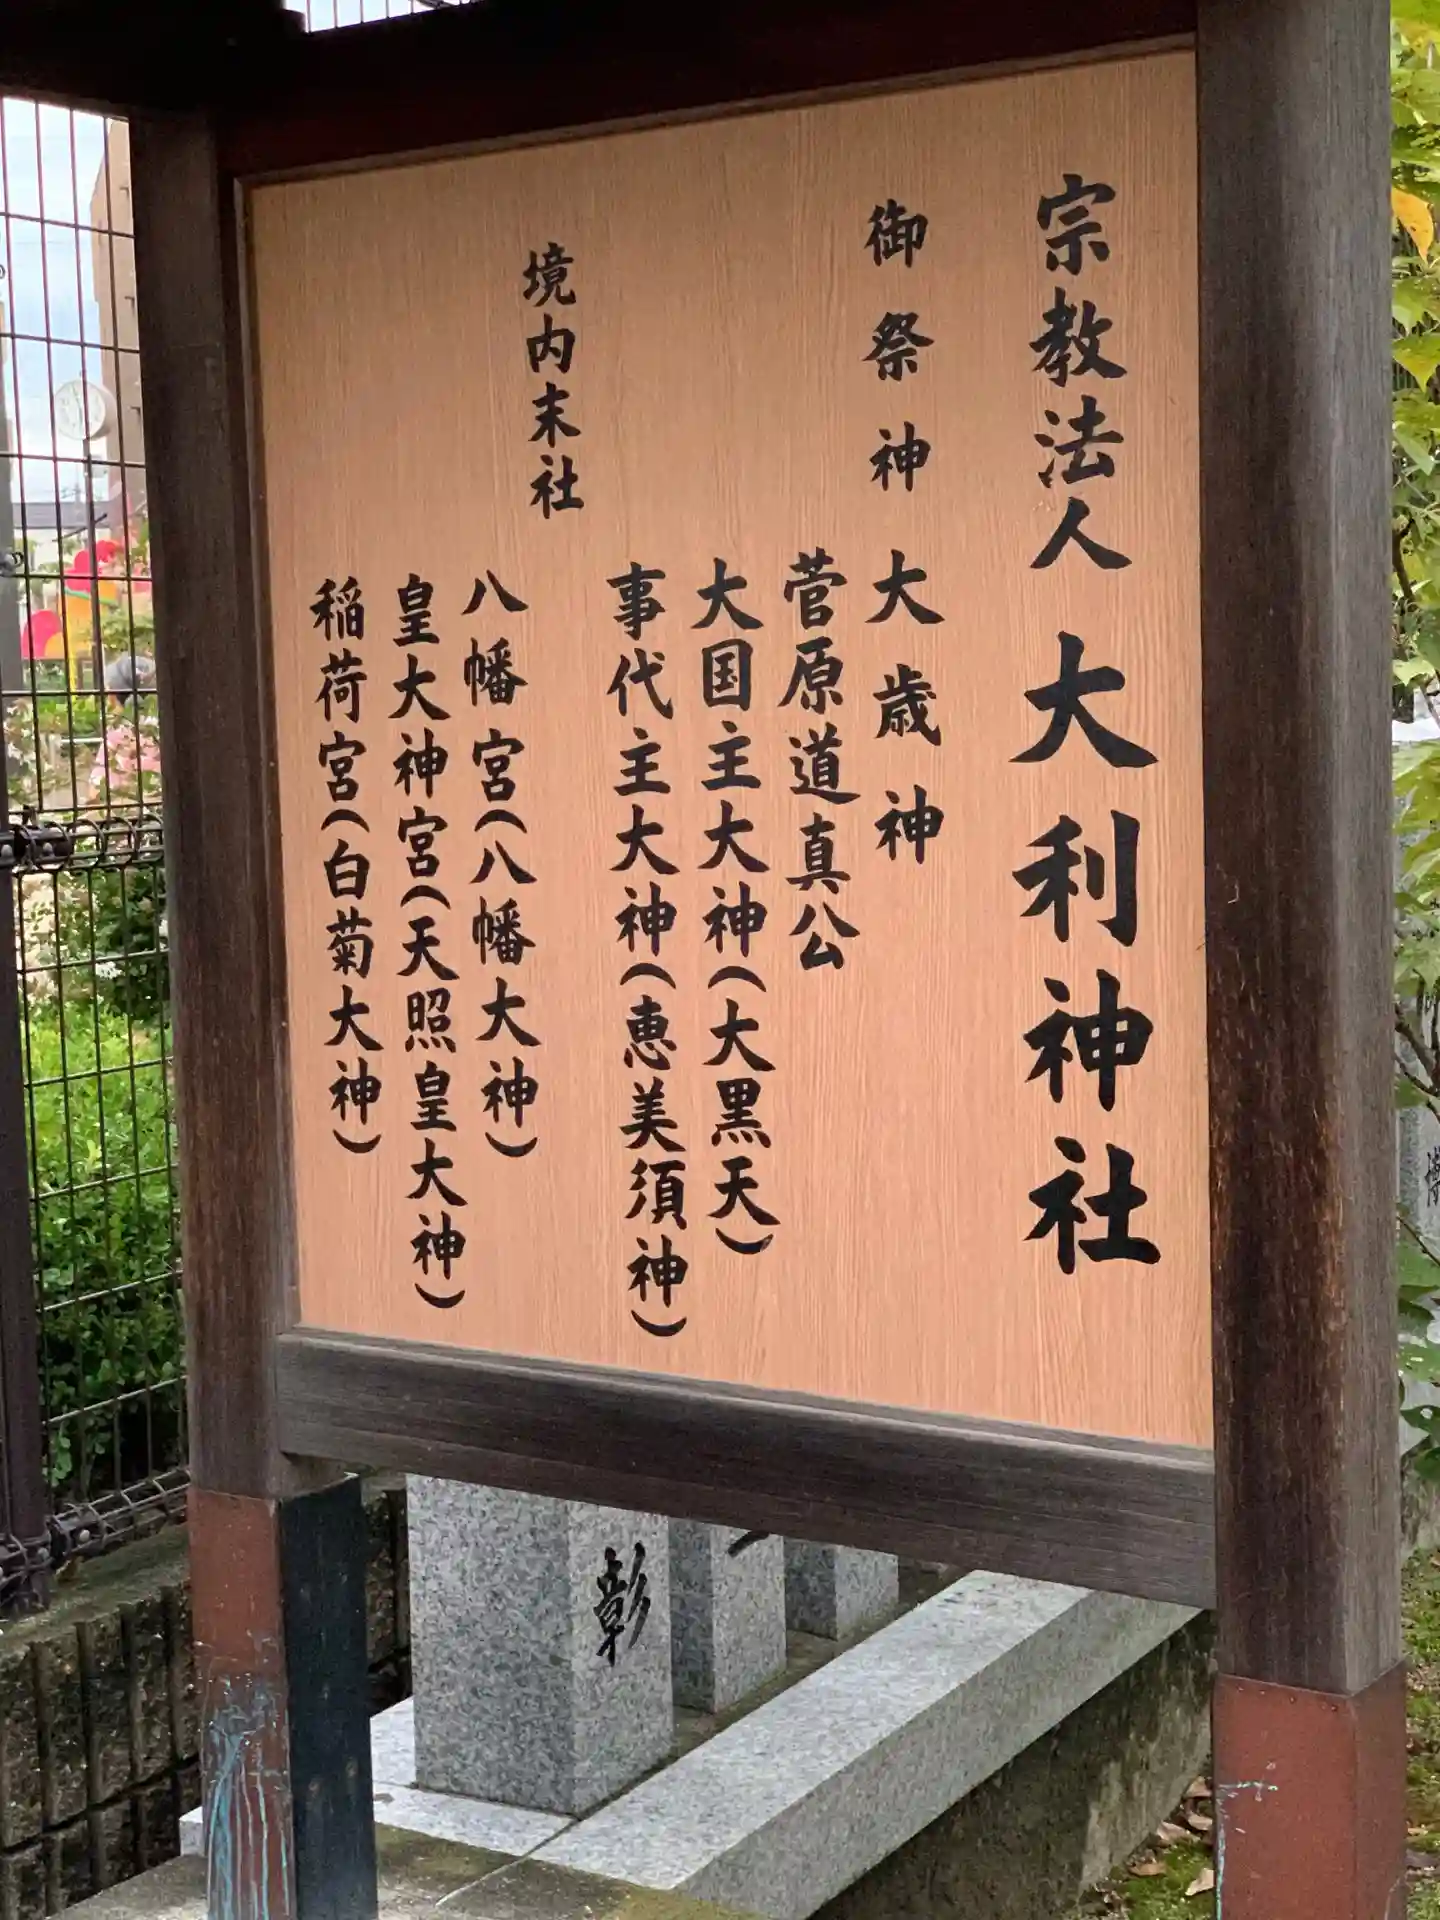 宗教法人 大利神社
御祭神 大歳神
菅原道真公
大国主大神(大黒天)
事代主大神(恵美須神)
境内末社
八幡宮(八幡大神)
皇大神宮(天照皇大神)
稲荷宮(白菊大神)
彰